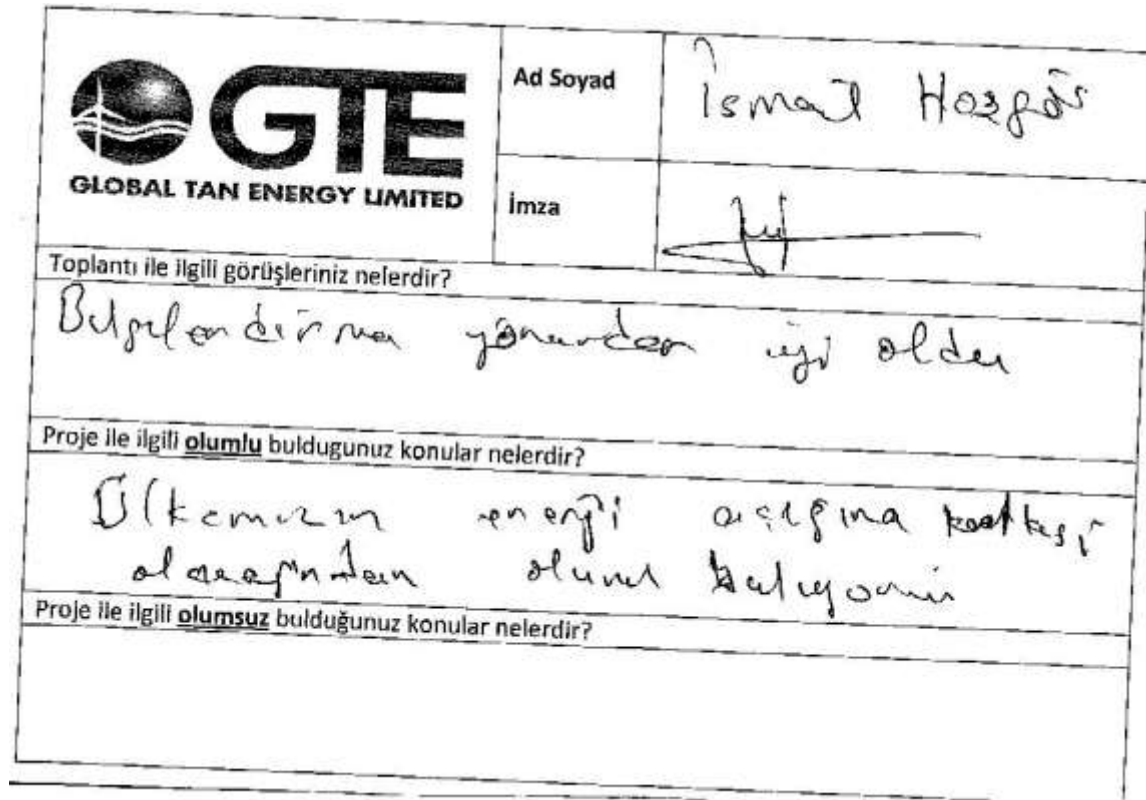 GTE
GLOBAL TAN ENERGY LIMITED
Ad Soyad
İsmail
İmza
Toplantı ile ilgili görüşleriniz nelerdir?
Bilgilendirme yönünden iyi oldu
Proje ile ilgili olumlu buldugunuz konular nelerdir?
Ülkemizin enerji açığına katkısı
olacağından olumlu buluyorum
Proje ile ilgili olumsuz bulduğunuz konular nelerdir?